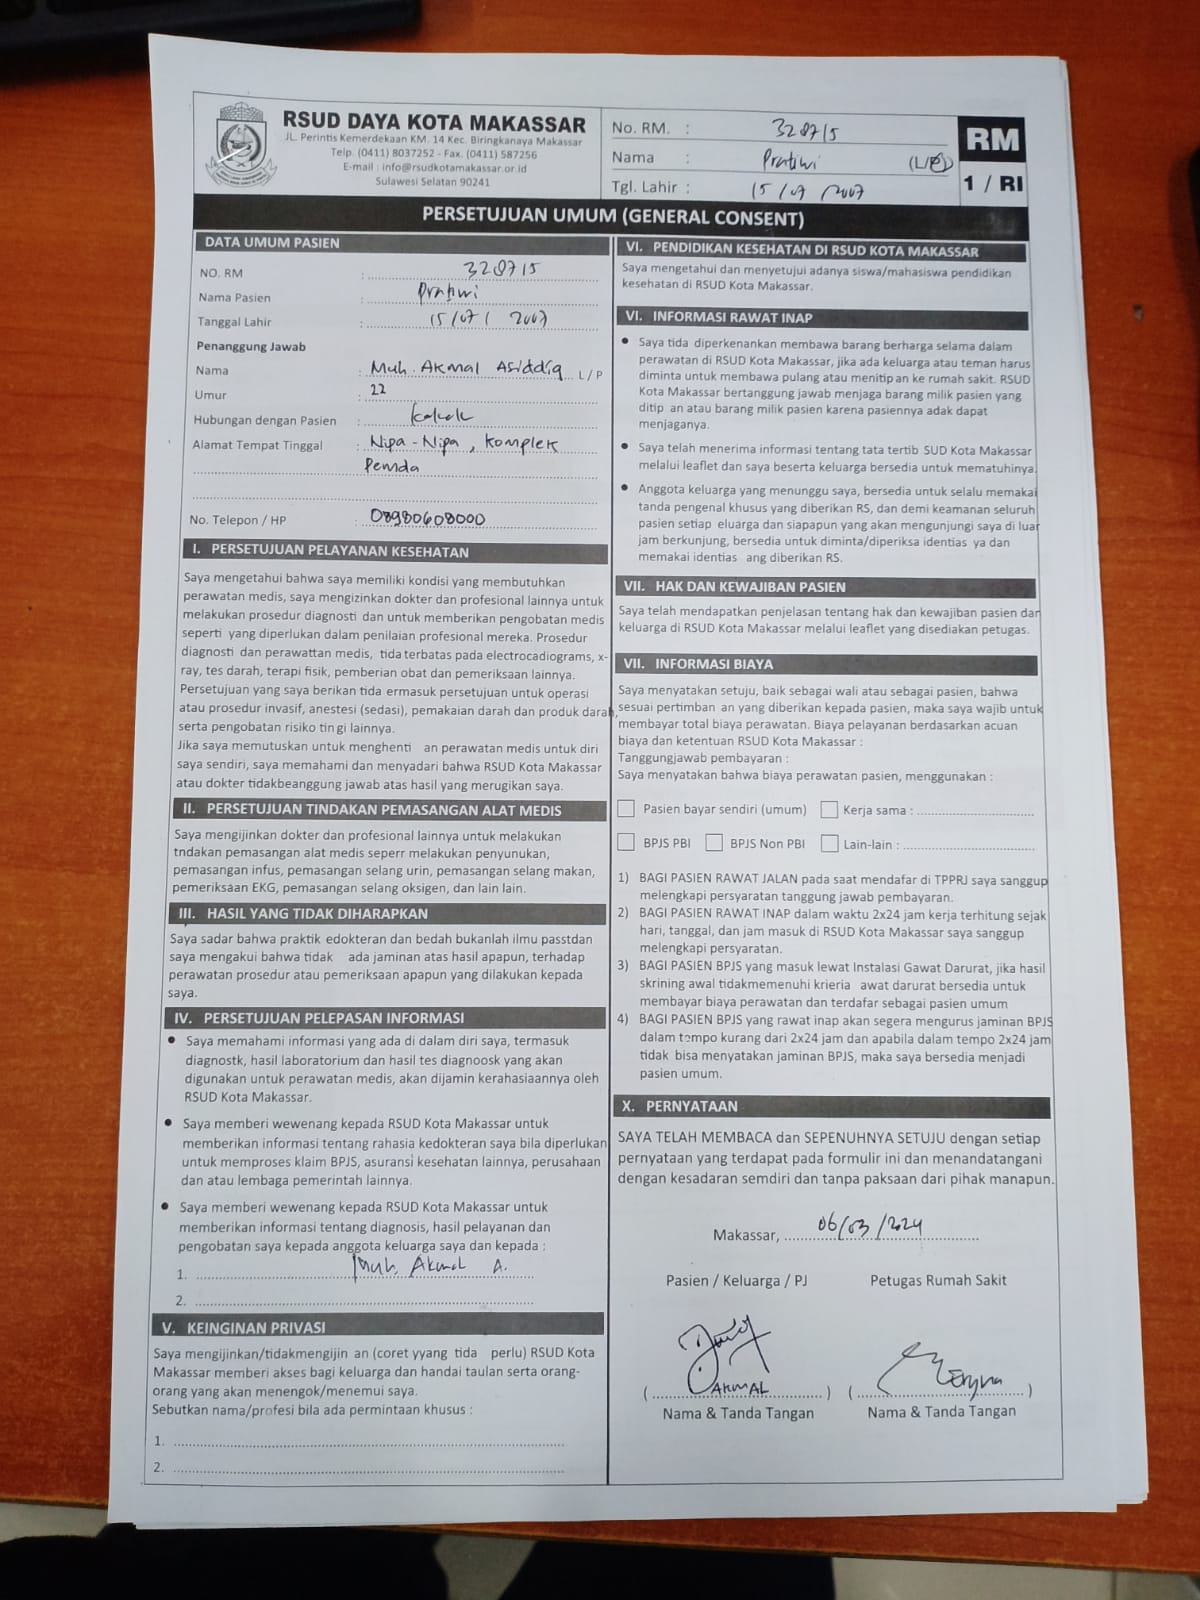 RSUD DAYA KOTA MAKASSAR
JL. Perintis Kemerdekaan KM. 14 Kec. Biringkanaya Makassar
Telp. (0411) 8037252 - Fax. (0411) 587256
E-mail : info@rsudkotamakassar.or.id
Sulawesi Selatan 90241
No. RM. : 328715
Nama : Pratiwi (L/P)
Tgl. Lahir : 15/07/2007
RM
1 / RI
PERSETUJUAN UMUM (GENERAL CONSENT)
DATA UMUM PASIEN
NO. RM : 328715
Nama Pasien : Pratiwi
Tanggal Lahir : 15/07/ 2007
Penanggung Jawab
Nama : Muh. Akmal Asiddiq L / P
Umur : 22
Hubungan dengan Pasien : Kakak
Alamat Tempat Tinggal : Nipa-Nipa, Komplek
Pemda
No. Telepon / HP : 08980608000
I. PERSETUJUAN PELAYANAN KESEHATAN
Saya mengetahui bahwa saya memiliki kondisi yang membutuhkan
perawatan medis, saya mengizinkan dokter dan profesional lainnya untuk
melakukan prosedur diagnosti dan untuk memberikan pengobatan medis
seperti yang diperlukan dalam penilaian profesional mereka. Prosedur
diagnosti dan perawattan medis, tida terbatas pada electrocadiograms, x-
ray, tes darah, terapi fisik, pemberian obat dan pemeriksaan lainnya.
Persetujuan yang saya berikan tida ermasuk persetujuan untuk operasi
atau prosedur invasif, anestesi (sedasi), pemakaian darah dan produk darah,
serta pengobatan risiko tin gi lainnya.
Jika saya memutuskan untuk menghenti an perawatan medis untuk diri
saya sendiri, saya memahami dan menyadari bahwa RSUD Kota Makassar
atau dokter tidakbeanggung jawab atas hasil yang merugikan saya.
II. PERSETUJUAN TINDAKAN PEMASANGAN ALAT MEDIS
Saya mengijinkan dokter dan profesional lainnya untuk melakukan
tndakan pemasangan alat medis seperr melakukan penyunukan,
pemasangan infus, pemasangan selang urin, pemasangan selang makan,
pemeriksaan EKG, pemasangan selang oksigen, dan lain lain.
III. HASIL YANG TIDAK DIHARAPKAN
Saya sadar bahwa praktik edokteran dan bedah bukanlah ilmu passtdan
saya mengakui bahwa tidak ada jaminan atas hasil apapun, terhadap
perawatan prosedur atau pemeriksaan apapun yang dilakukan kepada
saya.
IV. PERSETUJUAN PELEPASAN INFORMASI
● Saya memahami informasi yang ada di dalam diri saya, termasuk
diagnostk, hasil laboratorium dan hasil tes diagnoosk yang akan
digunakan untuk perawatan medis, akan dijamin kerahasiaannya oleh
RSUD Kota Makassar.
● Saya memberi wewenang kepada RSUD Kota Makassar untuk
memberikan informasi tentang rahasia kedokteran saya bila diperlukan
untuk memproses klaim BPJS, asuransi kesehatan lainnya, perusahaan
dan atau lembaga pemerintah lainnya.
● Saya memberi wewenang kepada RSUD Kota Makassar untuk
memberikan informasi tentang diagnosis, hasil pelayanan dan
pengobatan saya kepada anggota keluarga saya dan kepada :
1. Muh. Akmal A.
2.
V. KEINGINAN PRIVASI
Saya mengijinkan/tidakmengijin an (coret yyang tida perlu) RSUD Kota
Makassar memberi akses bagi keluarga dan handai taulan serta orang-
orang yang akan menengok/menemui saya.
Sebutkan nama/profesi bila ada permintaan khusus :
1.
2.
VI. PENDIDIKAN KESEHATAN DI RSUD KOTA MAKASSAR
Saya mengetahui dan menyetujui adanya siswa/mahasiswa pendidikan
kesehatan di RSUD Kota Makassar.
VI. INFORMASI RAWAT INAP
● Saya tida diperkenankan membawa barang berharga selama dalam
perawatan di RSUD Kota Makassar, jika ada keluarga atau teman harus
diminta untuk membawa pulang atau menitip an ke rumah sakit. RSUD
Kota Makassar bertanggung jawab menjaga barang milik pasien yang
ditip an atau barang milik pasien karena pasiennya adak dapat
menjaganya.
● Saya telah menerima informasi tentang tata tertib SUD Kota Makassar
melalui leaflet dan saya beserta keluarga bersedia untuk mematuhinya.
● Anggota keluarga yang menunggu saya, bersedia untuk selalu memakai
tanda pengenal khusus yang diberikan RS, dan demi keamanan seluruh
pasien setiap eluarga dan siapapun yang akan mengunjungi saya di luar
jam berkunjung, bersedia untuk diminta/diperiksa identias ya dan
memakai identias ang diberikan RS.
VII. HAK DAN KEWAJIBAN PASIEN
Saya telah mendapatkan penjelasan tentang hak dan kewajiban pasien dan
keluarga di RSUD Kota Makassar melalui leaflet yang disediakan petugas.
VII. INFORMASI BIAYA
Saya menyatakan setuju, baik sebagai wali atau sebagai pasien, bahwa
sesuai pertimban an yang diberikan kepada pasien, maka saya wajib untuk
membayar total biaya perawatan. Biaya pelayanan berdasarkan acuan
biaya dan ketentuan RSUD Kota Makassar :
Tanggungjawab pembayaran :
Saya menyatakan bahwa biaya perawatan pasien, menggunakan :
Pasien bayar sendiri (umum) Kerja sama :
BPJS PBI BPJS Non PBI Lain-lain :
1) BAGI PASIEN RAWAT JALAN pada saat mendafar di TPPRJ saya sanggup
melengkapi persyaratan tanggung jawab pembayaran.
2) BAGI PASIEN RAWAT INAP dalam waktu 2x24 jam kerja terhitung sejak
hari, tanggal, dan jam masuk di RSUD Kota Makassar saya sanggup
melengkapi persyaratan.
3) BAGI PASIEN BPJS yang masuk lewat Instalasi Gawat Darurat, jika hasil
skrining awal tidakmemenuhi krieria awat darurat bersedia untuk
membayar biaya perawatan dan terdafar sebagai pasien umum
4) BAGI PASIEN BPJS yang rawat inap akan segera mengurus jaminan BPJS
dalam tempo kurang dari 2x24 jam dan apabila dalam tempo 2x24 jam
tidak bisa menyatakan jaminan BPJS, maka saya bersedia menjadi
pasien umum.
X. PERNYATAAN
SAYA TELAH MEMBACA dan SEPENUHNYA SETUJU dengan setiap
pernyataan yang terdapat pada formulir ini dan menandatangani
dengan kesadaran semdiri dan tanpa paksaan dari pihak manapun.
Makassar, 06/03/2024
Pasien / Keluarga / PJ Petugas Rumah Sakit
(AKMAL) ( )
Nama & Tanda Tangan Nama & Tanda Tangan